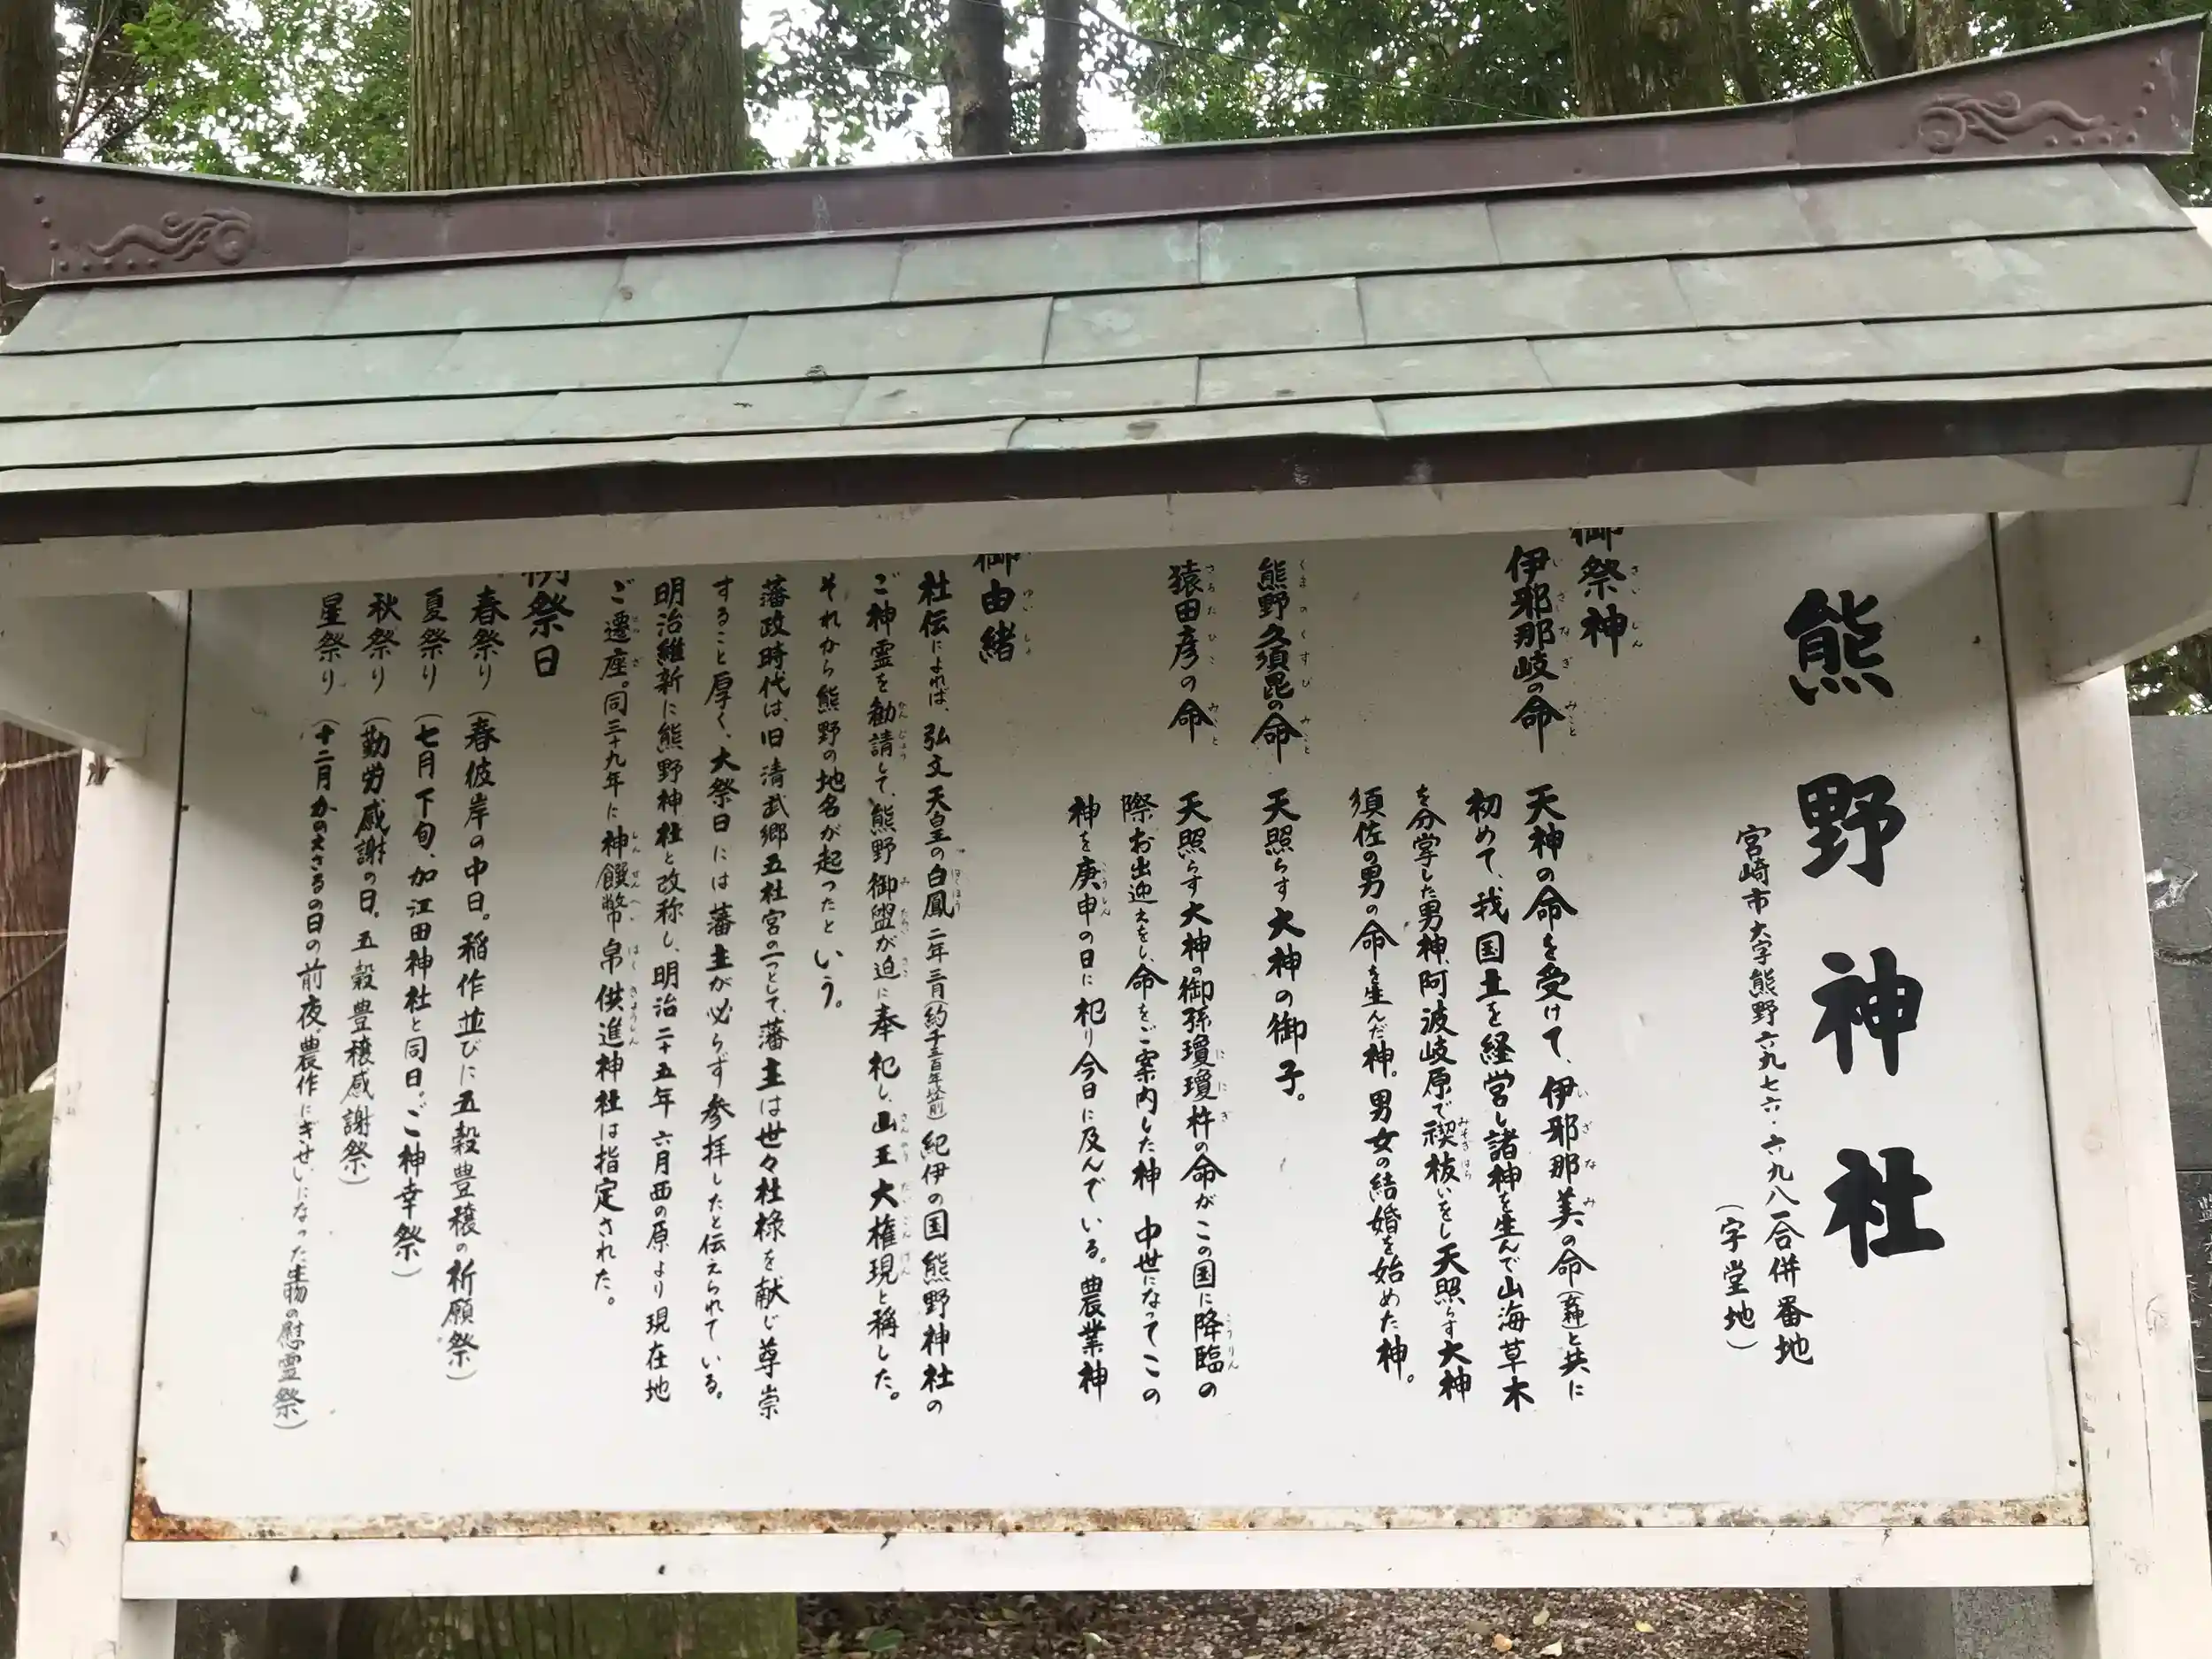 熊野神社
宮崎市大字熊野六九七六・六九八一合併番地
（字堂地）
御祭神
伊邪那岐の命　天神の命を受けて、伊邪那美の命（女神）と共に
初めて、我国土を経営し諸神を生んで山海草木
を分掌した男神、阿波岐原で禊祓いをし天照らす大神
須佐の男の命を生んだ神。男女の結婚を始めた神。
熊野久須毘の命　天照らす大神の御子。
猿田彦の命　天照らす大神の御孫瓊瓊杵の命がこの国に降臨の
際お出迎えをし、命をご案内した神　中世になってこの
神を庚申の日に祀り今日に及んでいる。農業神
御由緒
社伝によれば、弘文天皇の白鳳二年三月（約千三百年以前）紀伊の国熊野神社の
ご神霊を勧請して、熊野御盥が迫に奉祀し、山王大権現と稱した。
それから熊野の地名が起ったという。
藩政時代は、旧清武郷五社宮の一つとして、藩主は世々社祿を献じ尊崇
すること厚く、大祭日には藩主が必らず参拝したと伝えられている。
明治維新に熊野神社と改称し、明治二十五年六月西の原より現在地
ご遷座。同三十九年に神饌幣帛供進神社は指定された。
例祭日
春祭り（春彼岸の中日。稲作並びに五穀豊穣の祈願祭）
夏祭り（七月下旬、加江田神社と同日。ご神幸祭）
秋祭り（勤労感謝の日。五穀豊穣感謝祭）
星祭り（十二月かのえさるの日の前夜、農作にぎせいになった生物の慰霊祭）